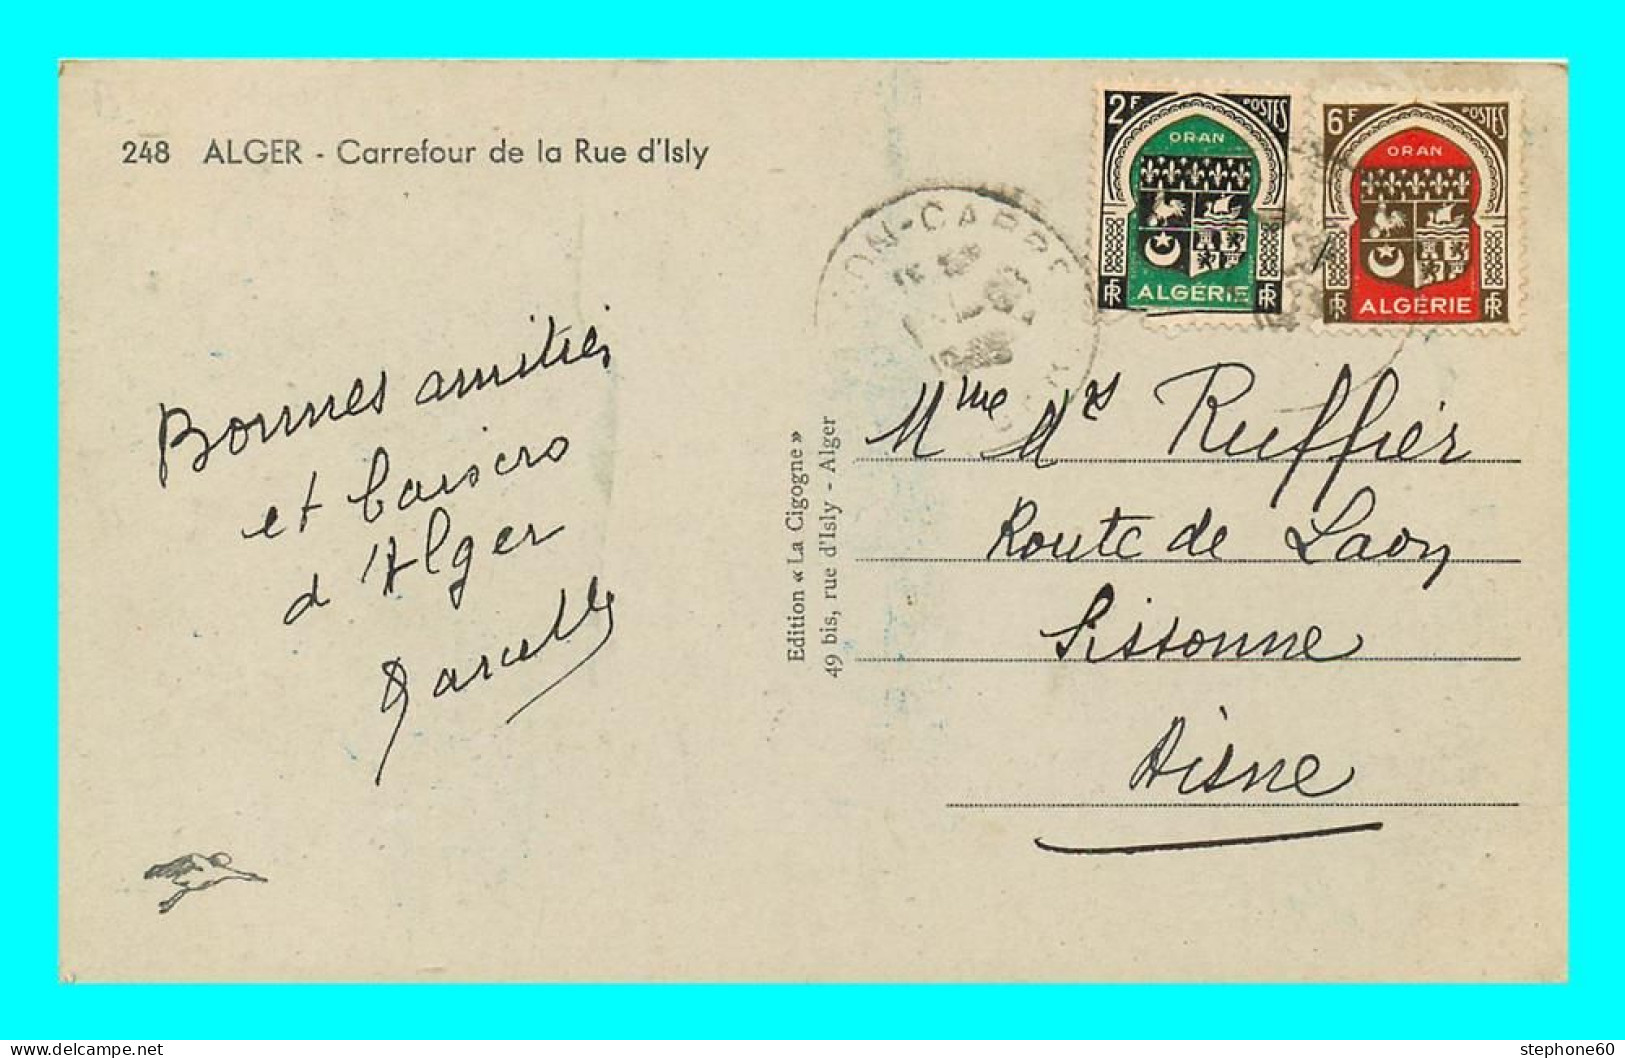 248 ALGER - Carrefour de la Rue d'Isly
2F POSTES
ORAN
ALGÉRIE
RF RF
6F POSTES
ORAN
ALGÉRIE
RF RF
ON-CARRE
Bonnes amitiés
et baisers
d'Alger
Marcelle
Edition « La Cigogne »
49 bis, rue d'Isly - Alger
Mme Ruffier
Route de Laon
Sissonne
Aisne
www.delcampe.net
stephone60